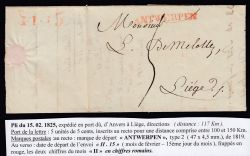 ANTWERPEN
Monsieur
L. DeMelotte
Liège
Pli du 15. 02. 1825, expédié en port dû, d'Anvers à Liège, directions (distance : 117 Km.)
Port de la lettre : 5 unités de 5 cents, inscrits au recto pour une distance comprise entre 100 et 150 Km.
Marques postales au recto : marque de départ « ANTWERPEN », type 2 ( 47 x 4,5 mm.), de 1819.
Au verso : date de départ de l'envoi « II . 15 » ( mois de février – 15ème jour du mois ), frappés en
rouge, les deux chiffres du mois « II » en chiffres romains.